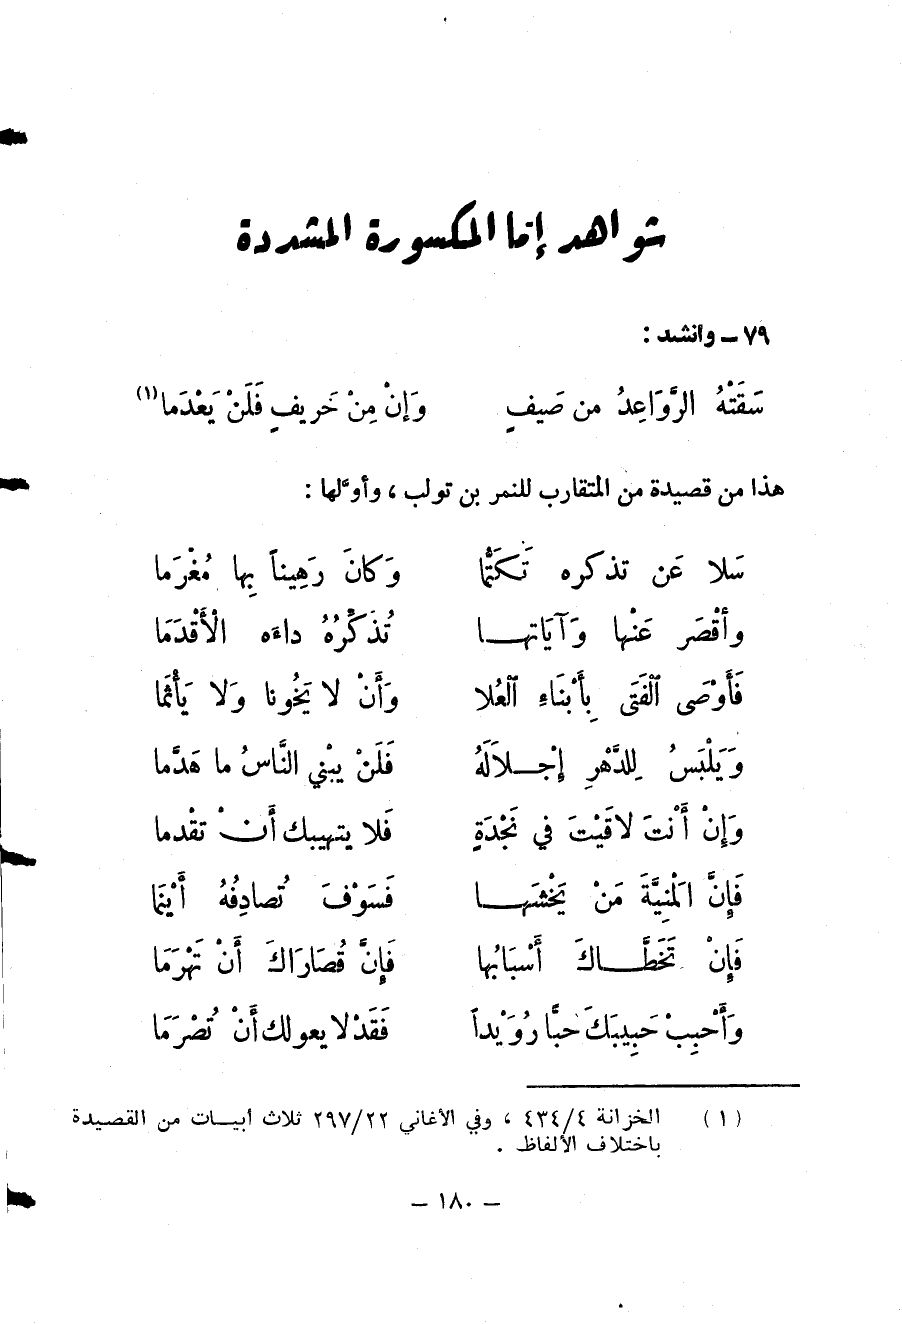 شواهد إمّا المكسورة المشددة
٧٩ ـ وأنشد :
سَقَتْهُ الرَّوَاعِدُ من صَيفٍ وَإِنْ مِنْ خَريفٍ فَلَنْ يَعْدَما(١)
هذا من قصيدة من المتقارب للنمر بن تولب ، وأوّلها :
سَلا عَن تذكره تَكتَمُّا وَكانَ رَهِيناً بِها مُغْرَما
وأقْصَر عَنْها وَآيَاتهـــا تُذَكِّرُهُ داءَه الْأَقْدَمَا
فَأَوْصَى الْفَتَى بِأَبْنَاءِ الْعُلا وَأَنْ لا يَخُونا وَلا يَأْثَما
وَيَلْبَسُ لِلدَّهْرِ إِجْـــلاَلَهُ فَلَنْ يبْنِي النَّاسُ ما هَدَّما
وَإِنْ أَنْتَ لاقَيْتَ في نَجْدَةٍ فَلا يتهيبك أَنْ تقْدما
فَإِنَّ المَنِيَّةَ مَنْ يَخْشَهـــا فَسَوْفَ تُصادِفُهُ أَيْنَما
فَإِنْ تَخَطَّـــاكَ أَسْبَابُها فَإِنَّ قُصَارَاكَ أَنْ تَهْرَمَا
وَأَحْبِبْ حَبِيبَكَ حُبًّا رُوَيْداً فَقَدْ لا يعولك أَنْ تُصْرَمَا
(١) الخزانة ٤/٤٣٤ ، وفي الأغاني ٢٩٧/٢٢ ثلاث أبيـــات من القصيدة
باختلاف الألفاظ .
ـ ١٨٠ ـ